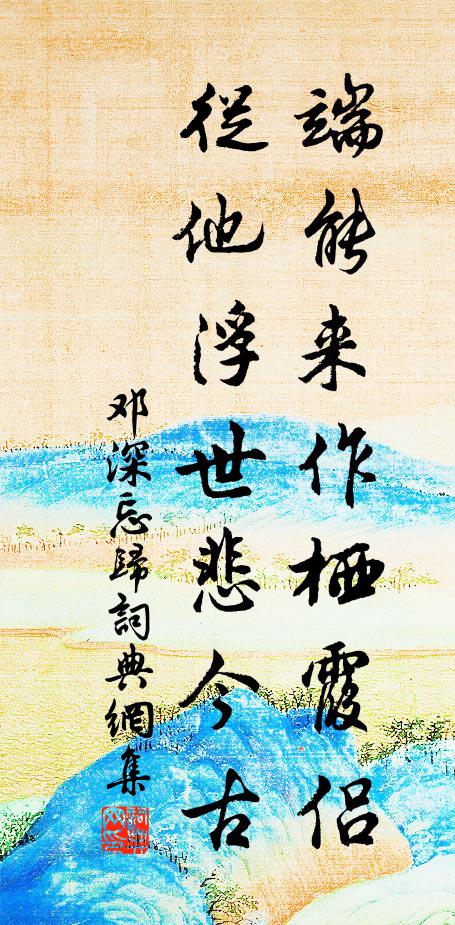 端能来作栖霞侣
從他浮世悲今古
邓深忘歸詞典網集